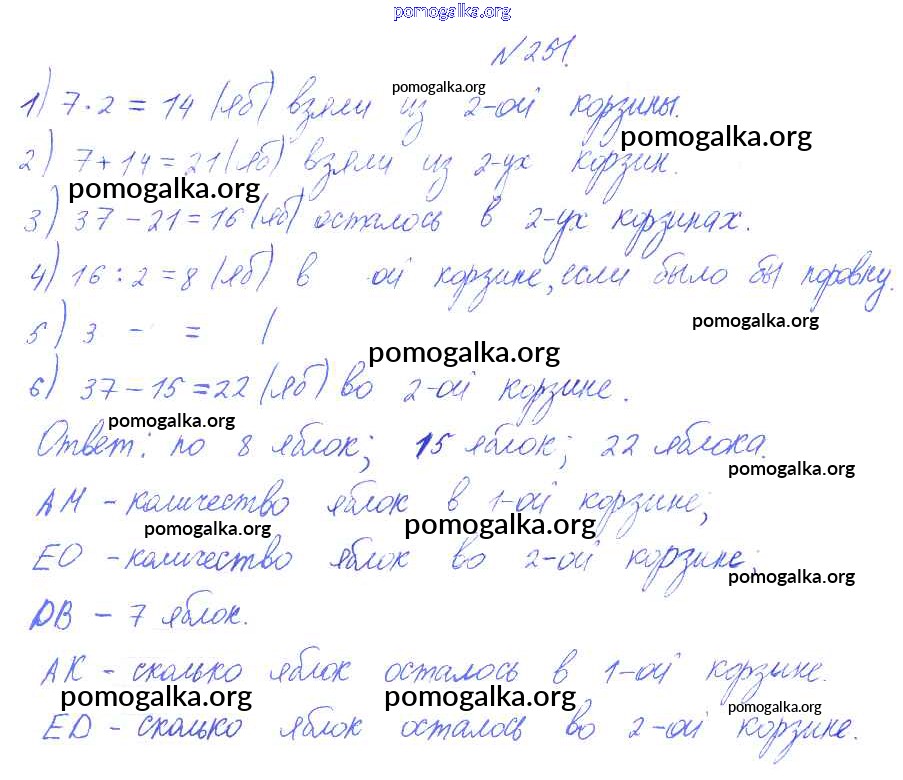 pomogalka.org
N 251.
1) 7 · 2 = 14 (яб) взяли из 2-ой корзины.
pomogalka.org
pomogalka.org
2) 7 + 14 = 21 (яб) взяли из 2-ух корзин.
pomogalka.org
3) 37 - 21 = 16 (яб) осталось в 2-ух корзинах.
4) 16 : 2 = 8 (яб) в -ой корзине, если было бы поровну.
pomogalka.org
5) 3 - =
pomogalka.org
6) 37 - 15 = 22 (яб) во 2-ой корзине.
pomogalka.org
Ответ: по 8 яблок; 15 яблок; 22 яблока.
pomogalka.org
АМ - количество яблок в 1-ой корзине;
pomogalka.org
pomogalka.org
ЕО - количество яблок во 2-ой корзине;
pomogalka.org
DB - 7 яблок.
АК - сколько яблок осталось в 1-ой корзине.
pomogalka.org
pomogalka.org
pomogalka.org
ED - сколько яблок осталось во 2-ой корзине.